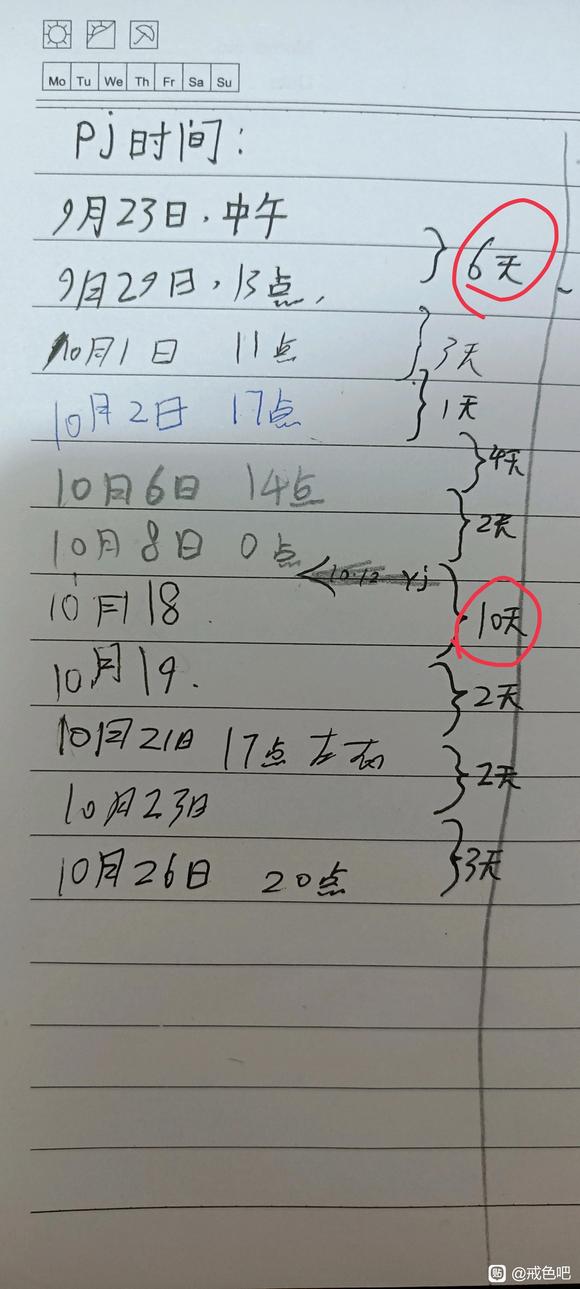 Mo Tu We Th Fr Sa Su
Pj时间：
9月23日，中午
6天
9月29日，13点，
10月1日 11点
3天
10月2日 17点
1天
4天
10月6日 14点
2天
10月8日 0点
10.12 Yj
10月18
10天
10月19.
2天
10月21日 17点左右
2天
10月23日
10月26日 20点
3天
贴 @戒色吧